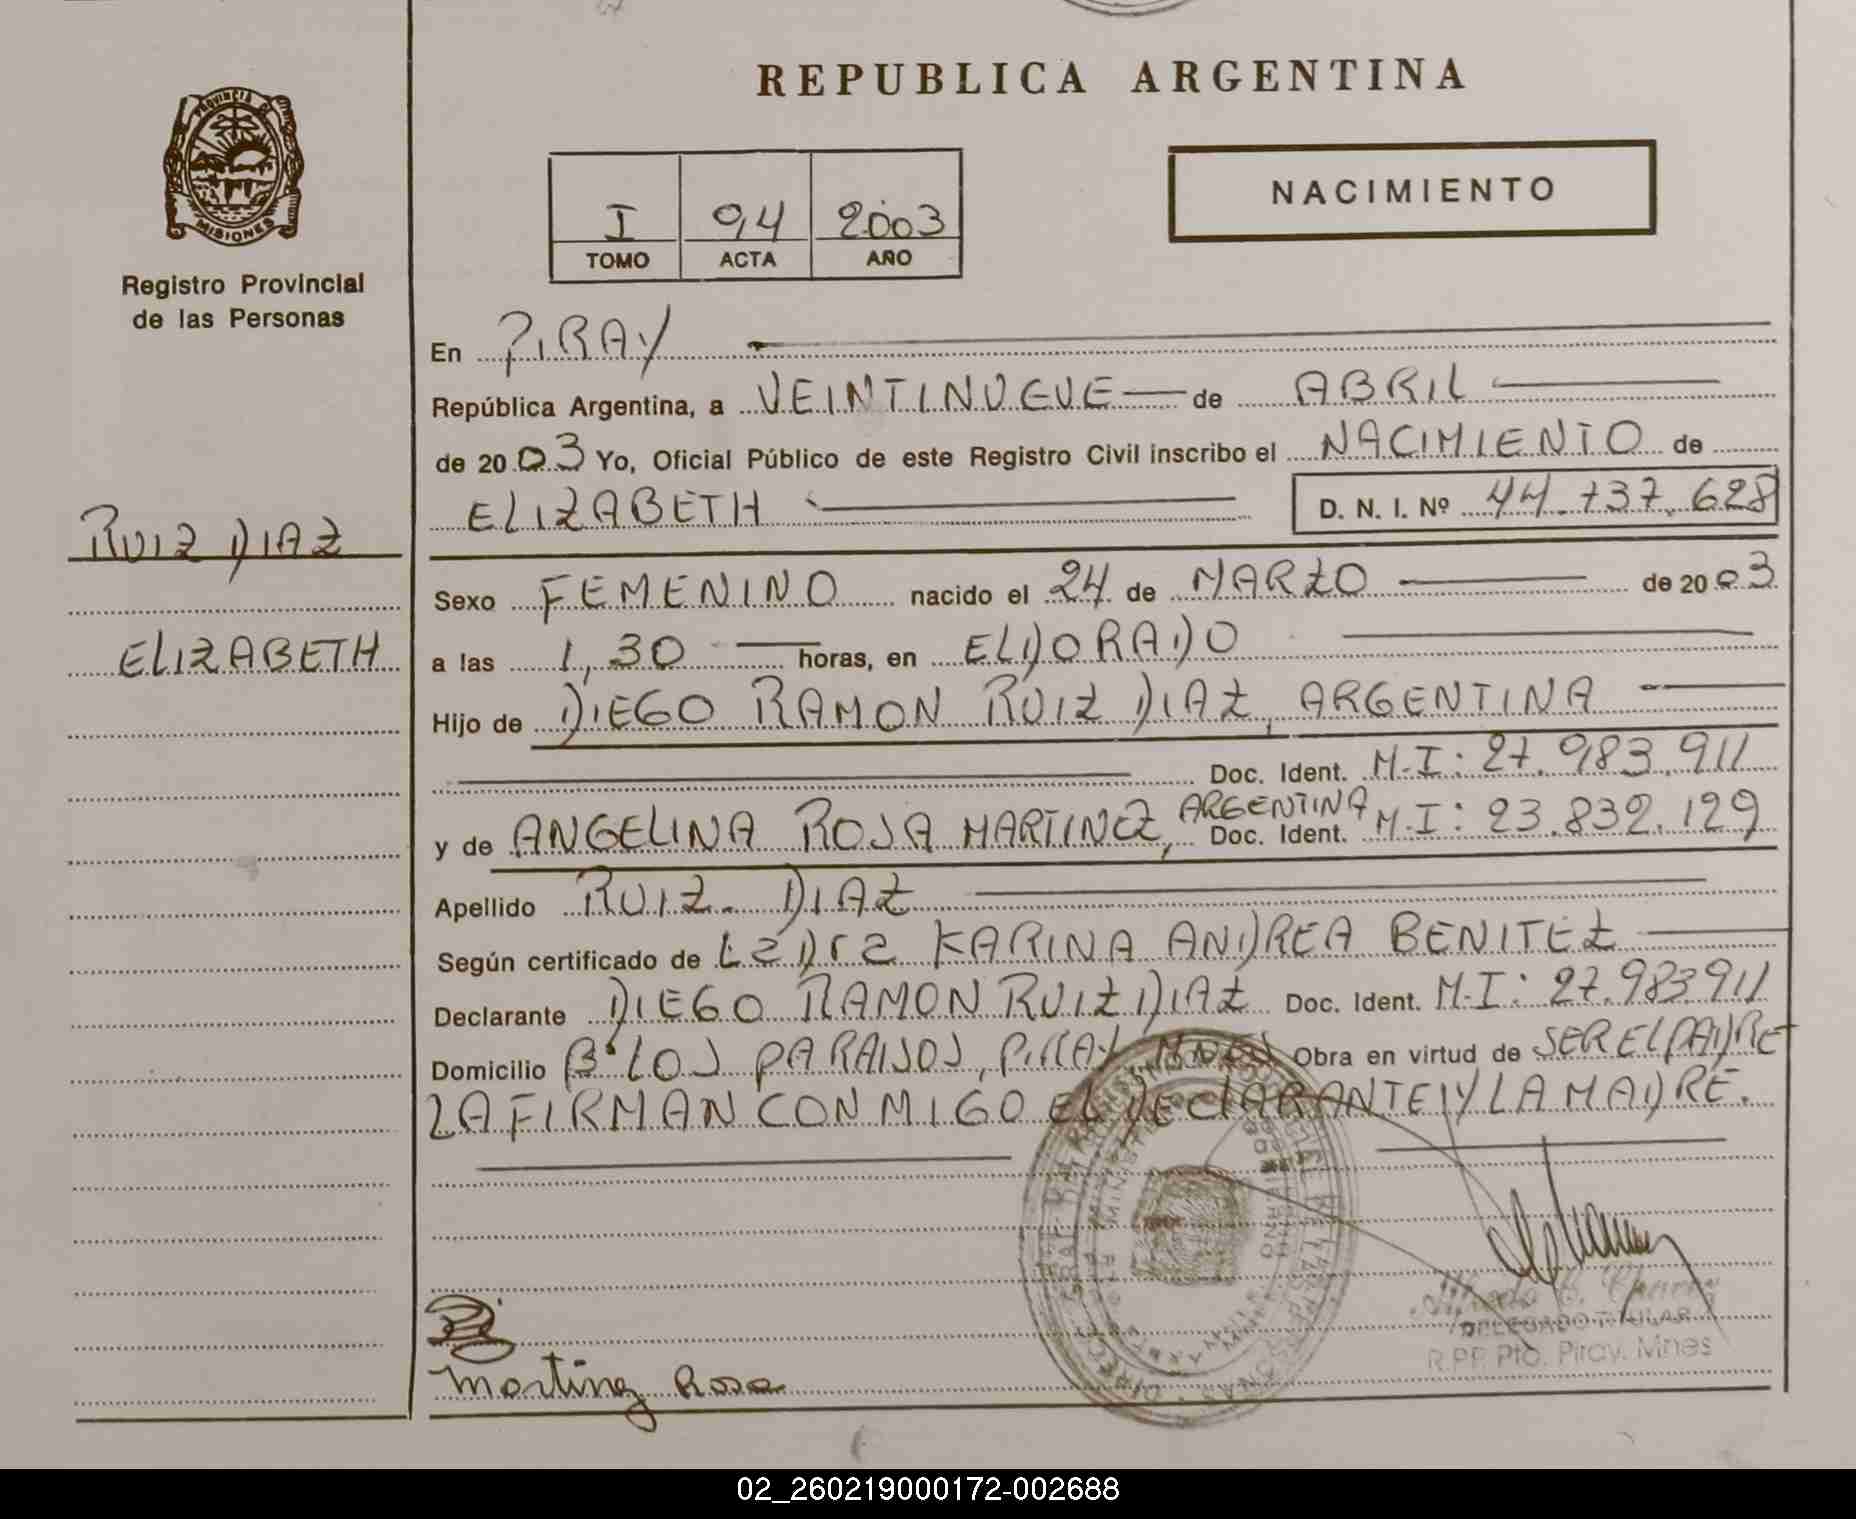 REPUBLICA ARGENTINA
PROVINCIA DE
MISIONES
Registro Provincial
de las Personas
I 94 2003
TOMO ACTA AÑO
NACIMIENTO
En PIRAY
República Argentina, a VEINTINUEVE de ABRIL
de 2003 Yo, Oficial Público de este Registro Civil inscribo el NACIMIENTO de
ELIZABETH D. N. I. Nº 44.737.628
RUIZ DIAZ
ELIZABETH
Sexo FEMENINO nacido el 24 de MARZO de 2003
a las 1,30 horas, en ELDORADO
Hijo de DIEGO RAMON RUIZ DIAZ, ARGENTINA
Doc. Ident. M.I: 27.983.911
y de ANGELINA ROSA MARTINEZ, ARGENTINA Doc. Ident. M.I: 23.832.129
Apellido RUIZ DIAZ
Según certificado de KARINA ANDREA BENITEZ
Declarante DIEGO RAMON RUIZ DIAZ Doc. Ident. M.I: 27.983911
Domicilio Bº LOS PARAISOS, PIRAY, MNES Obra en virtud de SER EL PADRE
LA FIRMAN CONMIGO EL DECLARANTE Y LA MADRE.
DELEGADO TITULAR
R.P.P. Pto. Piray. Mnes
Martinez Rosa
02_260219000172-002688